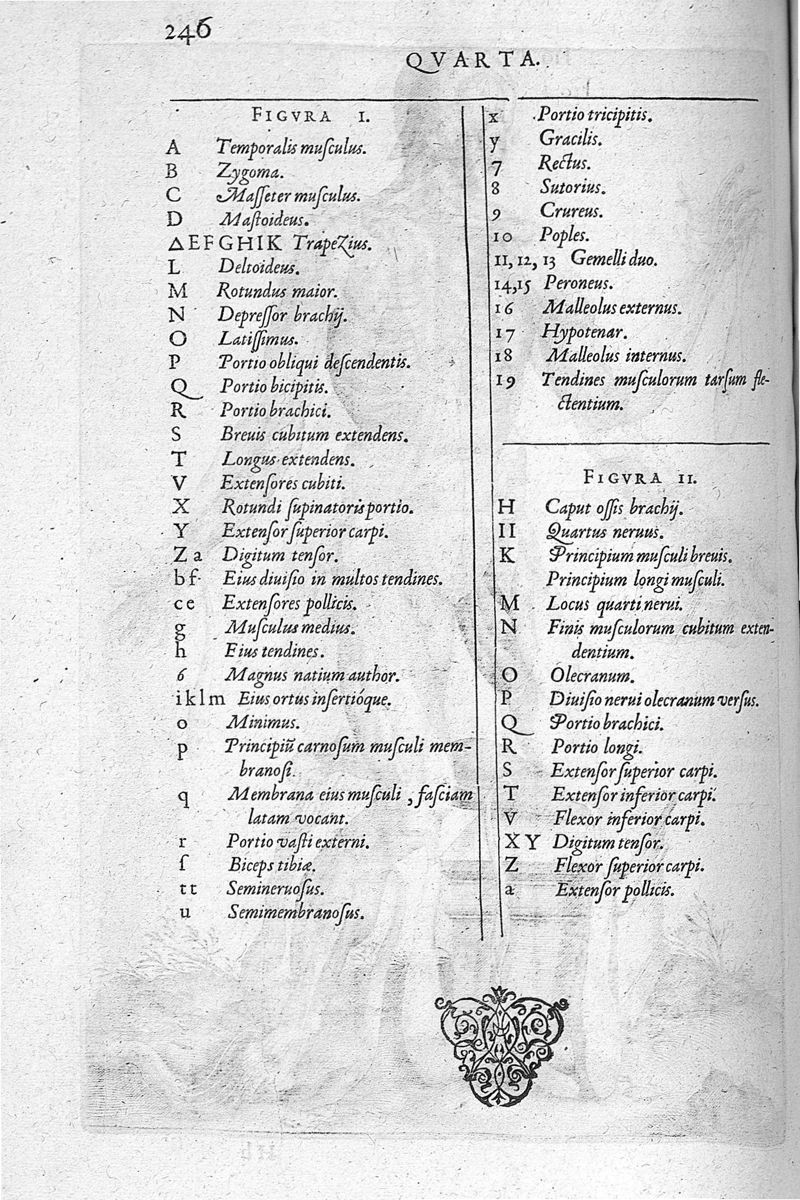 246
QVARTA.
FIGVRA I.
A Temporalis muſculus.
B Zygoma.
C Maſſeter muſculus.
D Maſtoideus.
ΔEFGHIK Trapezius.
L Deltoideus.
M Rotundus maior.
N Depreſſor brachij.
O Latiſſimus.
P Portio obliqui deſcendentis.
Q Portio bicipitis.
R Portio brachici.
S Breuis cubitum extendens.
T Longus extendens.
V Extenſores cubiti.
X Rotundi ſupinatoris portio.
Y Extenſor ſuperior carpi.
Z a Digitum tenſor.
bf. Eius diuiſio in multos tendines.
ce Extenſores pollicis.
g Muſculus medius.
h Eius tendines.
6 Magnus natium author.
iklm Eius ortus inſertióque.
o Minimus.
p Principiũ carnoſum muſculi mem-
branoſi.
q Membrana eius muſculi, faſciam
latam vocant.
r Portio vaſti externi.
ſ Biceps tibiæ.
tt Semineruoſus.
u Semimembranoſus.
x Portio tricipitis.
y Gracilis.
7 Rectus.
8 Sutorius.
9 Crureus.
10 Poples.
11, 12, 13 Gemelli duo.
14,15 Peroneus.
16 Malleolus externus.
17 Hypotenar.
18 Malleolus internus.
19 Tendines muſculorum tarſum fle-
ctentium.
FIGVRA II.
H Caput oſſis brachij.
II Quartus neruus.
K Principium muſculi breuis.
Principium longi muſculi.
M Locus quarti nerui.
N Finis muſculorum cubitum exten-
dentium.
O Olecranum.
P Diuiſio nerui olecranum verſus.
Q Portio brachici.
R Portio longi.
S Extenſor ſuperior carpi.
T Extenſor inferior carpi.
V Flexor inferior carpi.
XY Digitum tenſor.
Z Flexor ſuperior carpi.
a Extenſor pollicis.